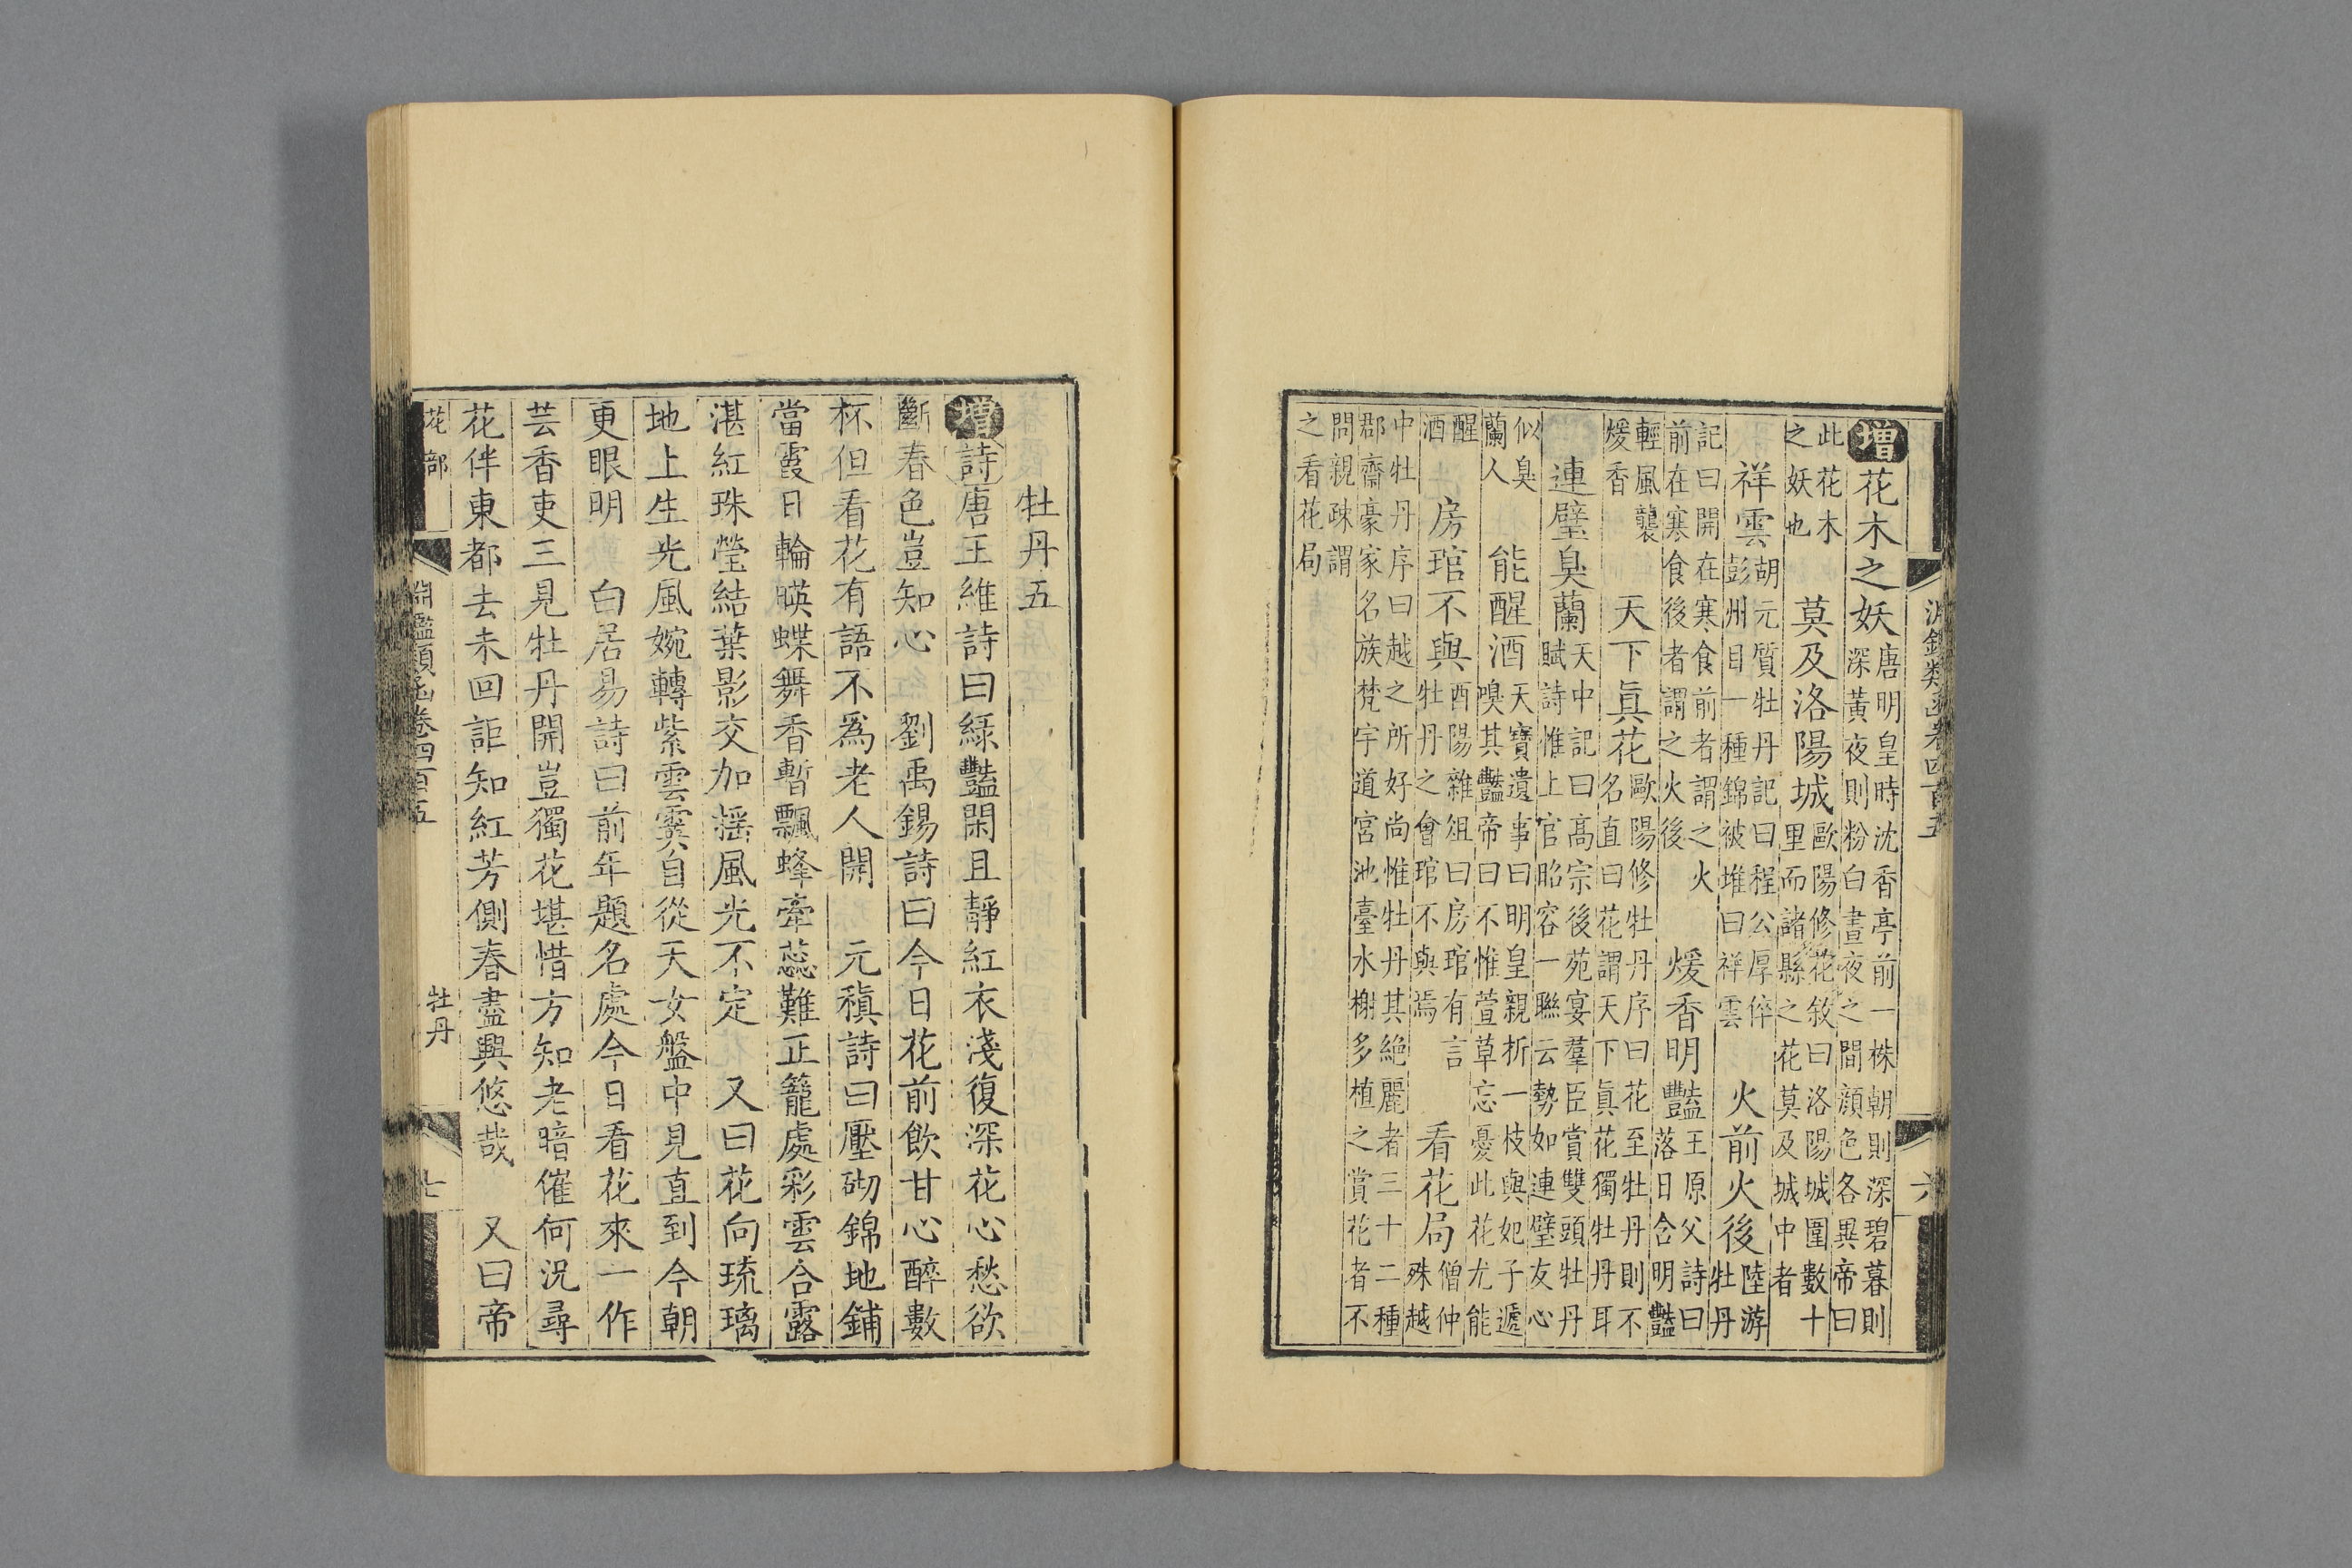 淵鑑類函卷四百五 六
增花木之妖唐明皇時沈香亭前一株朝則深碧暮則深黃夜則粉白晝夜之間顏色各異帝曰
此花木之妖也 莫及洛陽城歐陽修花敘曰洛陽城圍數十里而諸縣之花莫及城中者
祥雲胡元質牡丹記曰程公厚倅彭州目一種錦被堆曰祥雲 火前火後陸游牡丹
記曰開在寒食前者謂之火前在寒食後者謂之火後 煖香明豔王原父詩曰落日含明豔
輕風襲煖香 天下眞花歐陽修牡丹序曰花至牡丹則不名直曰花謂天下眞花獨牡丹耳
連璧臭蘭天中記曰高宗後苑宴羣臣賞雙頭牡丹賦詩惟上官昭容一聯云勢如連璧友心
似臭蘭人 能醒酒天寶遺事曰明皇親折一枝與妃子遞嗅其豔帝曰不惟萱草忘憂此花尤能
醒酒 房琯不與酉陽雜俎曰房琯有言牡丹之會琯不與焉 看花局僧仲殊越
中牡丹序曰越之所好尚惟牡丹其絕麗者三十二種郡齋豪家名族梵宇道宮池臺水榭多植之賞花者不
問親疎謂之看花局
牡丹五
增詩唐王維詩曰綠豔閑且靜紅衣淺復深花心愁欲
斷春色豈知心 劉禹錫詩曰今日花前飲甘心醉數
杯但看花有語不爲老人開 元稹詩曰壓砌錦地鋪
當霞日輪暎蝶舞香暫飄蜂牽蕊難正籠處彩雲合露
湛紅珠瑩結葉影交加揺風光不定 又曰花向琉璃
地上生光風婉轉紫雲霙自從天女盤中見直到今朝
更眼明 白居易詩曰前年題名處今日看花來一作
芸香吏三見牡丹開豈獨花堪惜方知老暗催何況尋
花伴東都去未回詎知紅芳側春盡興悠哉 又曰帝
花部 淵鑑類函卷四百五 牡丹 七